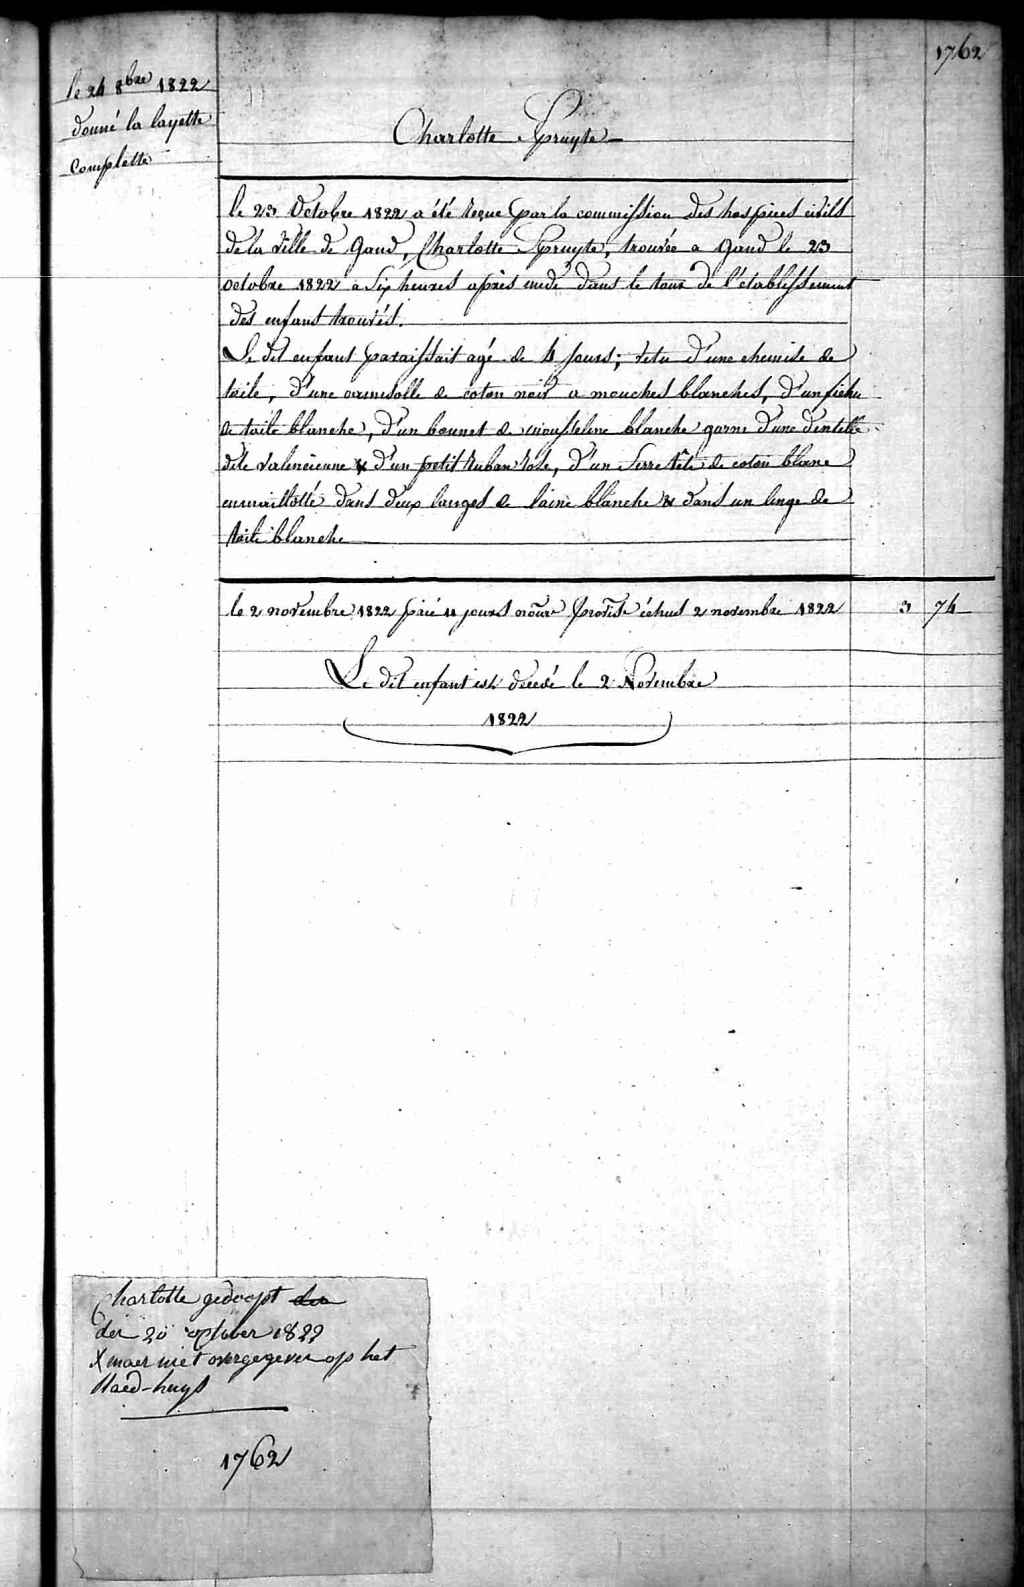 1762
le 24 8bre 1822
donné la layette
complette
Charlotte Spruyte
le 23 Octobre 1822 a été reçue par la commission des hospices civils
de la ville de Gand, Charlotte Spruyte, trouvée a Gand le 23
octobre 1822 à six heures après midi dans le tour de l'établissement
des enfans trouvés.
Le dit enfant paraissait agé de 4 jours; vetu d'une chemise de
toile, d'une camisolle de coton noir a mouches blanches, d'un fichu
de toile blanche, d'un bonnet de mousseline blanche garni d'une dentelle
dite valencienne & d'un petit ruban rose, d'un serre tête de coton blanc
emmaillotté dans deux langes de laine blanche & dans un linge de
toile blanche
le 2 novembre 1822 paié 11 jours nourre provis.e échus 2 novembre 1822 3 74
Le dit enfant est décédé le 2 Novembre
1822
Charlotte gedoopt den
den 20 october 1822
X maer niet overgegeven op het
staed-huys
1762